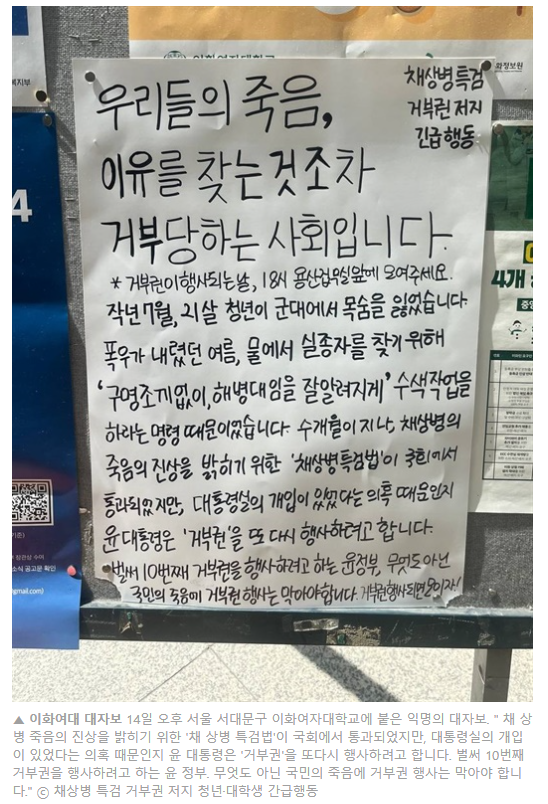 이화여자대학교
화정보원
여지부
채상병 특검
거부권 저지
긴급 행동
우리들의 죽음,
이유를 찾는것조차
거부당하는 사회입니다.
* 거부권이 행사되는 날, 18시 용산집무실앞에 모여주세요.
작년 7월, 21살 청년이 군대에서 목숨을 잃었습니다.
폭우가 내렸던 여름, 물에서 실종자를 찾기 위해
'구명조끼없이, 해병대임을 잘알려지게' 수색작업을
하라는 명령 때문이었습니다. 수개월이 지난, 채상병의
죽음의 진상을 밝히기 위한 '채상병특검법'이 국회에서
통과되었지만, 대통령실의 개입이 있었다는 의혹 때문인지
윤 대통령은 '거부권'을 또 다시 행사하려고 합니다.
벌써 10번째 거부권을 행사하려고 하는 윤정부, 무엇도 아닌
국민의 죽음에 거부권 행사는 막아야합니다. 거부권행사되면 모이자!
4
4개
소식 공고문 확인
gmail.com)
▲ 이화여대 대자보 14일 오후 서울 서대문구 이화여자대학교에 붙은 익명의 대자보. " 채 상
병 죽음의 진상을 밝히기 위한 '채 상병 특검법'이 국회에서 통과되었지만, 대통령실의 개입
이 있었다는 의혹 때문인지 윤 대통령은 '거부권'을 또다시 행사하려고 합니다. 벌써 10번째
거부권을 행사하려고 하는 윤 정부. 무엇도 아닌 국민의 죽음에 거부권 행사는 막아야 합니
다." ⓒ 채상병 특검 거부권 저지 청년·대학생 긴급행동